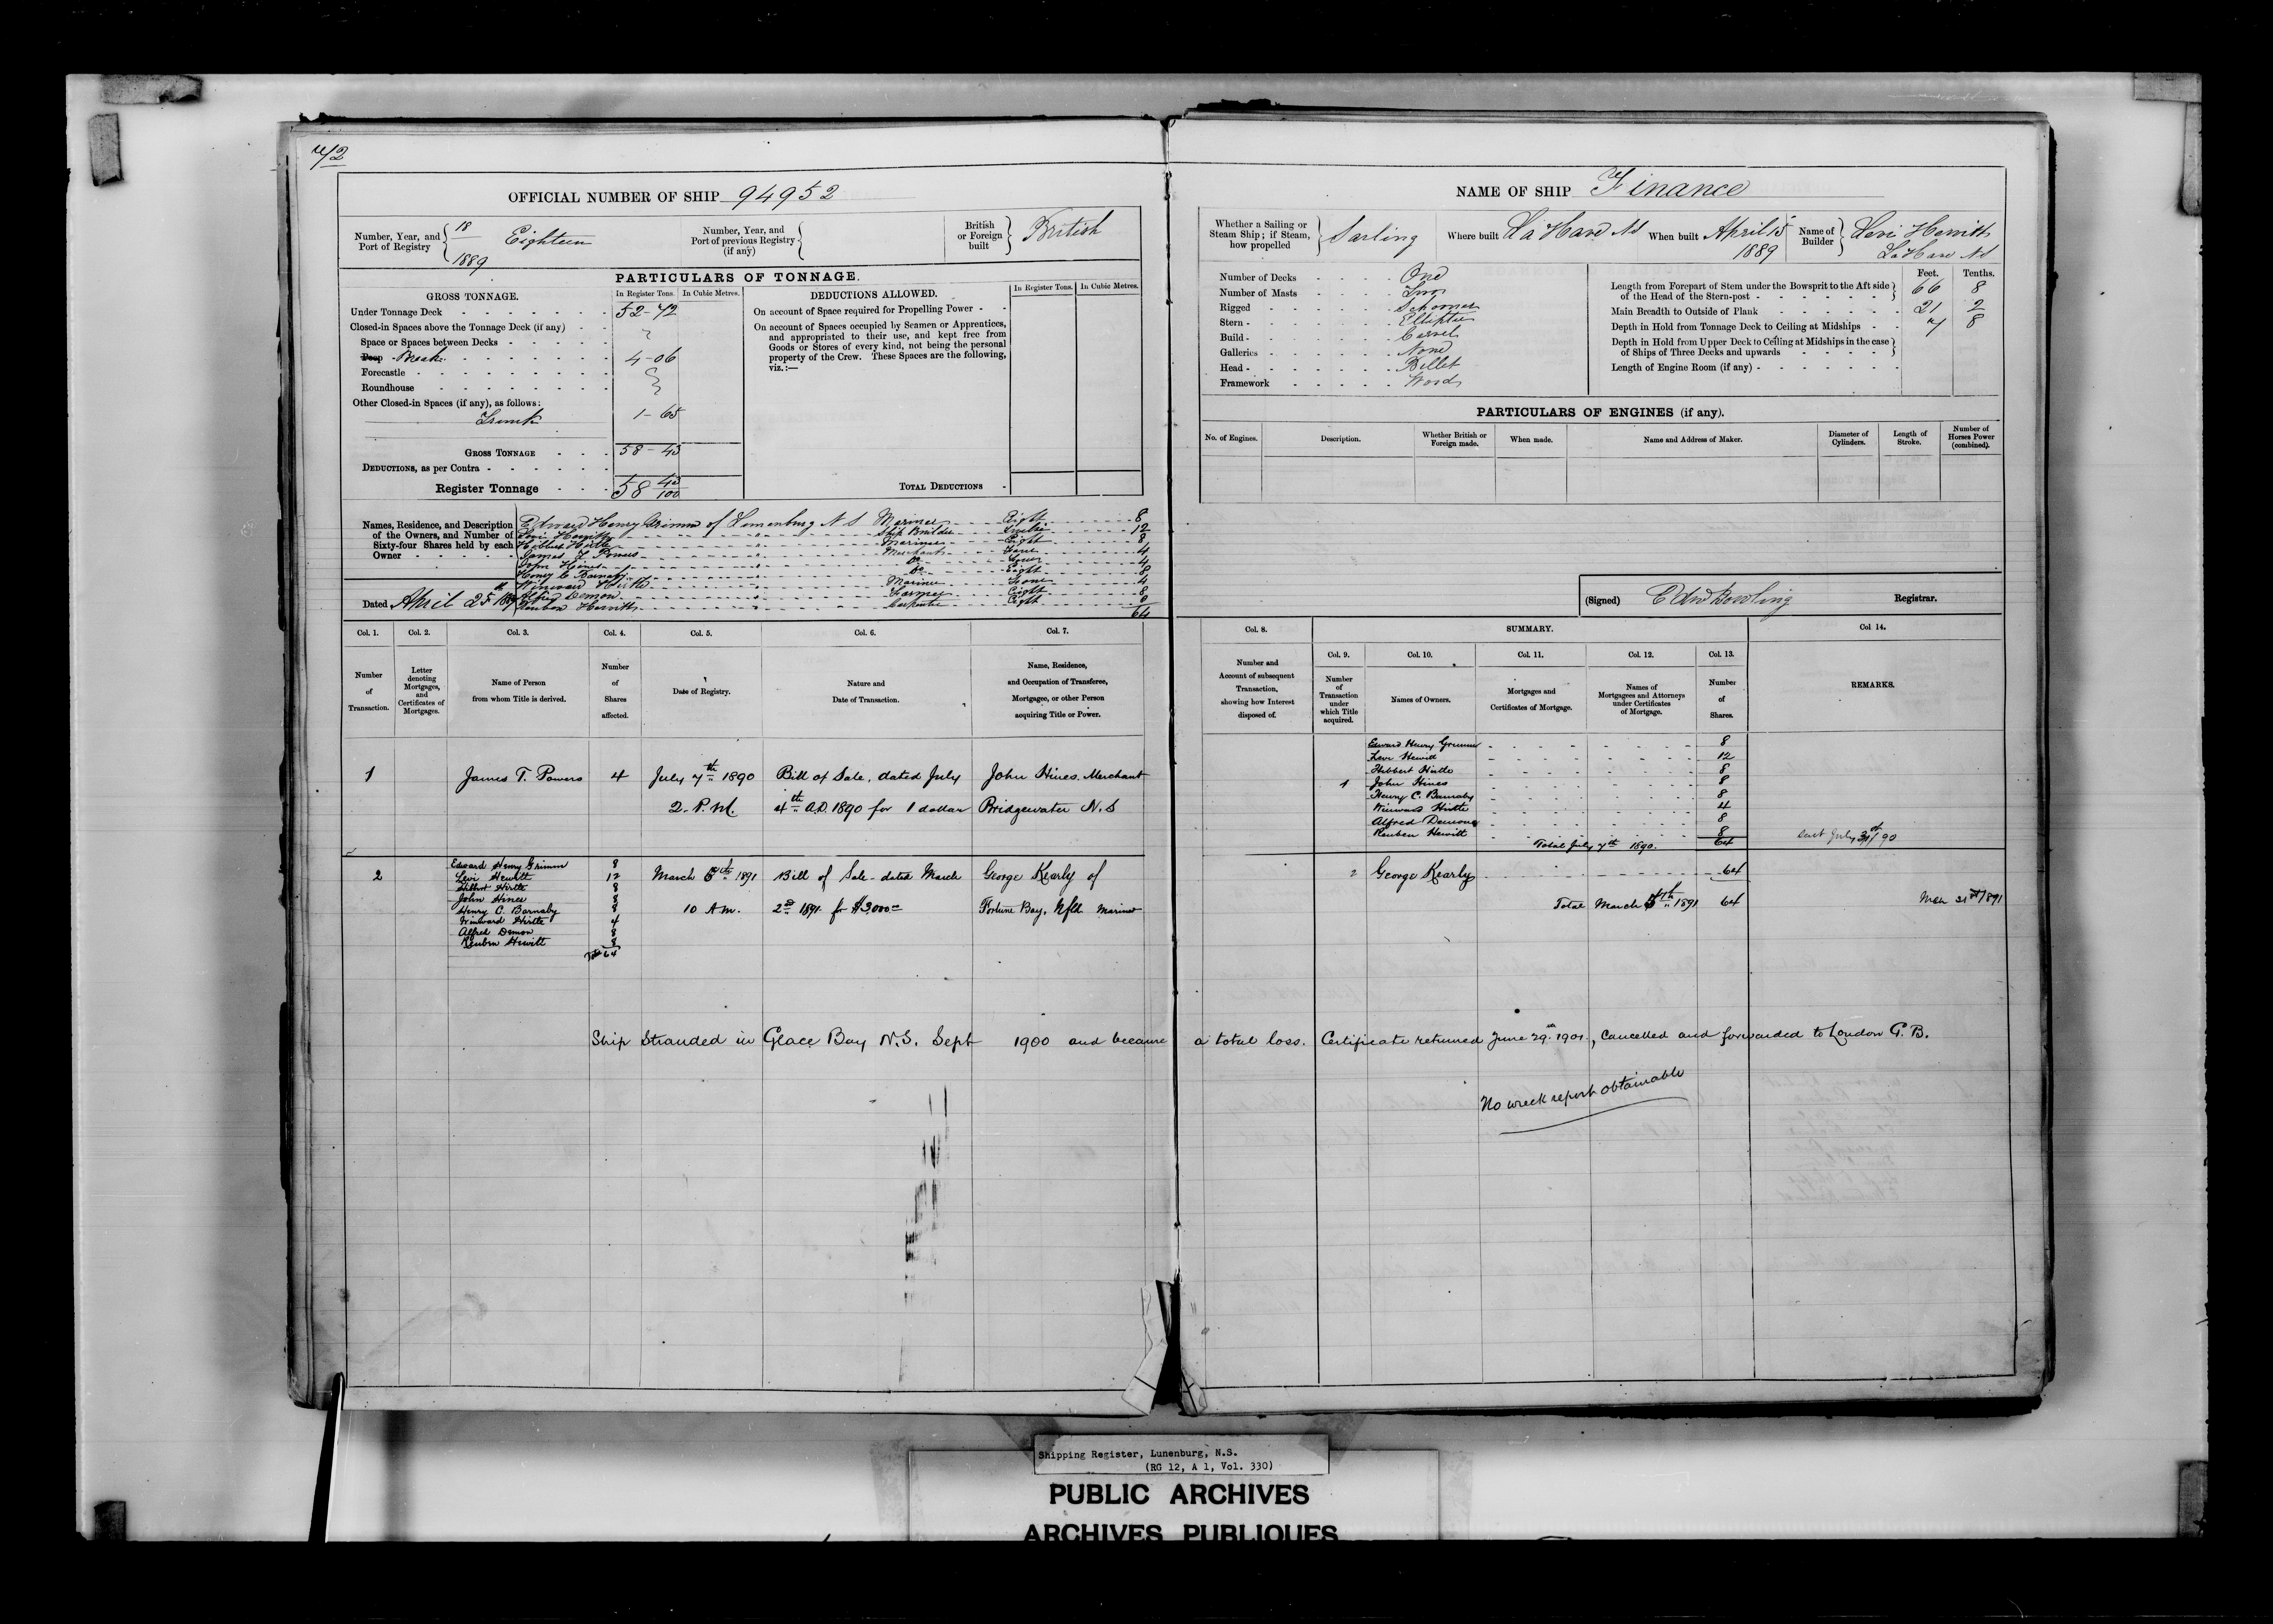 72
OFFICIAL NUMBER OF SHIP 94952
Number, Year, and Port of Registry 18 / 1889 Eighteen
Number, Year, and Port of previous Registry (if any)
British or Foreign built British
PARTICULARS OF TONNAGE.
GROSS TONNAGE.
In Register Tons. In Cubic Metres.
Under Tonnage Deck 52-72
Closed-in Spaces above the Tonnage Deck (if any)
Space or Spaces between Decks
Poop 4-06
Forecastle
Roundhouse
Other Closed-in Spaces (if any), as follows:
Trunk 1-65
GROSS TONNAGE 58-43
DEDUCTIONS, as per Contra
Register Tonnage 58 43/100
DEDUCTIONS ALLOWED.
In Register Tons. In Cubic Metres.
On account of Space required for Propelling Power
On account of Spaces occupied by Seamen or Apprentices,
and appropriated to their use, and kept free from
Goods or Stores of every kind, not being the personal
property of the Crew. These Spaces are the following,
viz.:—
TOTAL DEDUCTIONS
Names, Residence, and Description
of the Owners, and Number of
Sixty-four Shares held by each
Owner
Edward Henry Grimm of Lunenburg N S Mariner Eight 8
Levi Hewitt Ship Builder Twelve 12
Hibbert Hirtle Mariner Eight 8
James T Powers Merchant Four 4
John Hines Do Four 4
Henry C Barnaby Do Eight 8
Winward Hirtle Mariner Four 4
Alfred Demon Farmer Eight 8
Reuben Hewitt Carpenter Eight 8
64
Dated April 25th 1889
Col. 1. Col. 2. Col. 3. Col. 4. Col. 5. Col. 6. Col. 7.
Number of Transaction.
Letter denoting Mortgages, and Certificates of Mortgages.
Name of Person from whom Title is derived.
Number of Shares affected.
Date of Registry.
Nature and Date of Transaction.
Name, Residence, and Occupation of Transferee, Mortgagee, or other Person acquiring Title or Power.
1 James T. Powers 4 July 7th 1890 Bill of Sale, dated July John Hines, Merchant
2. P.M. 4th A.D. 1890 for 1 dollar Bridgewater N.S
2
Edward Henry Grimm 8
Levi Hewitt 12
Hibbert Hirtle 8
John Hines 8
Henry C. Barnaby 8
Winward Hirtle 4
Alfred Demon 8
Reuben Hewitt 8
Total 64
March 1891 Bill of Sale dated March George Kearly of
10 A.M. 2nd 1891 for $3,000= Fortune Bay, Nfld Mariner
NAME OF SHIP Finance
Whether a Sailing or Steam Ship; if Steam, how propelled Sailing
Where built La Have NS
When built April 15 1889
Name of Builder Levi Hewitt
La Have NS
Number of Decks One
Number of Masts Two
Rigged Schooner
Stern Elliptic
Build Carvel
Galleries None
Head Billet
Framework Wood
Feet. Tenths.
Length from Forepart of Stem under the Bowsprit to the Aft side
of the Head of the Stern-post 66 8
Main Breadth to Outside of Plank 21 2
Depth in Hold from Tonnage Deck to Ceiling at Midships 7 8
Depth in Hold from Upper Deck to Ceiling at Midships in the case
of Ships of Three Decks and upwards
Length of Engine Room (if any)
PARTICULARS OF ENGINES (if any).
No. of Engines. Description. Whether British or Foreign made. When made. Name and Address of Maker. Diameter of Cylinders. Length of Stroke. Number of Horses Power (combined).
(Signed) Edw Dowling Registrar.
Col. 8. SUMMARY. Col. 14.
Col. 9. Col. 10. Col. 11. Col. 12. Col. 13.
Number and Account of subsequent Transaction, showing how Interest disposed of.
Number of Transaction under which Title acquired.
Names of Owners.
Mortgages and Certificates of Mortgage.
Names of Mortgagees and Attorneys under Certificates of Mortgage.
Number of Shares.
REMARKS.
Edward Henry Grimm 8
Levi Hewitt 12
Hibbert Hirtle 8
1 John Hines 8
Henry C. Barnaby 8
Winward Hirtle 4
Alfred Demone 8
Reuben Hewitt 8
Total July 7th 1890. 64
July 31st/90
2 George Kearly 64
Total March 1891 64
Mch 31st/1891
Ship Stranded in Glace Bay N.S. Sept 1900 and became a total loss. Certificate returned June 29th 1901, cancelled and forwarded to London G.B.
No wreck report obtainable
Shipping Register, Lunenburg, N.S.
(RG 12, A 1, Vol. 330)
PUBLIC ARCHIVES
ARCHIVES PUBLIQUES